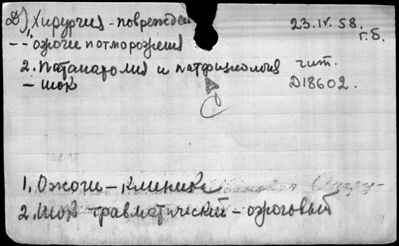 Д) Хирургия - поврежден
23.IV.58.
г.б.
-- ожоги и отморожения
2. Патанатомия и патфизиология чит.
- шок Д18602.
1. Ожоги - клиника
2. Шок травматический - ожоговый